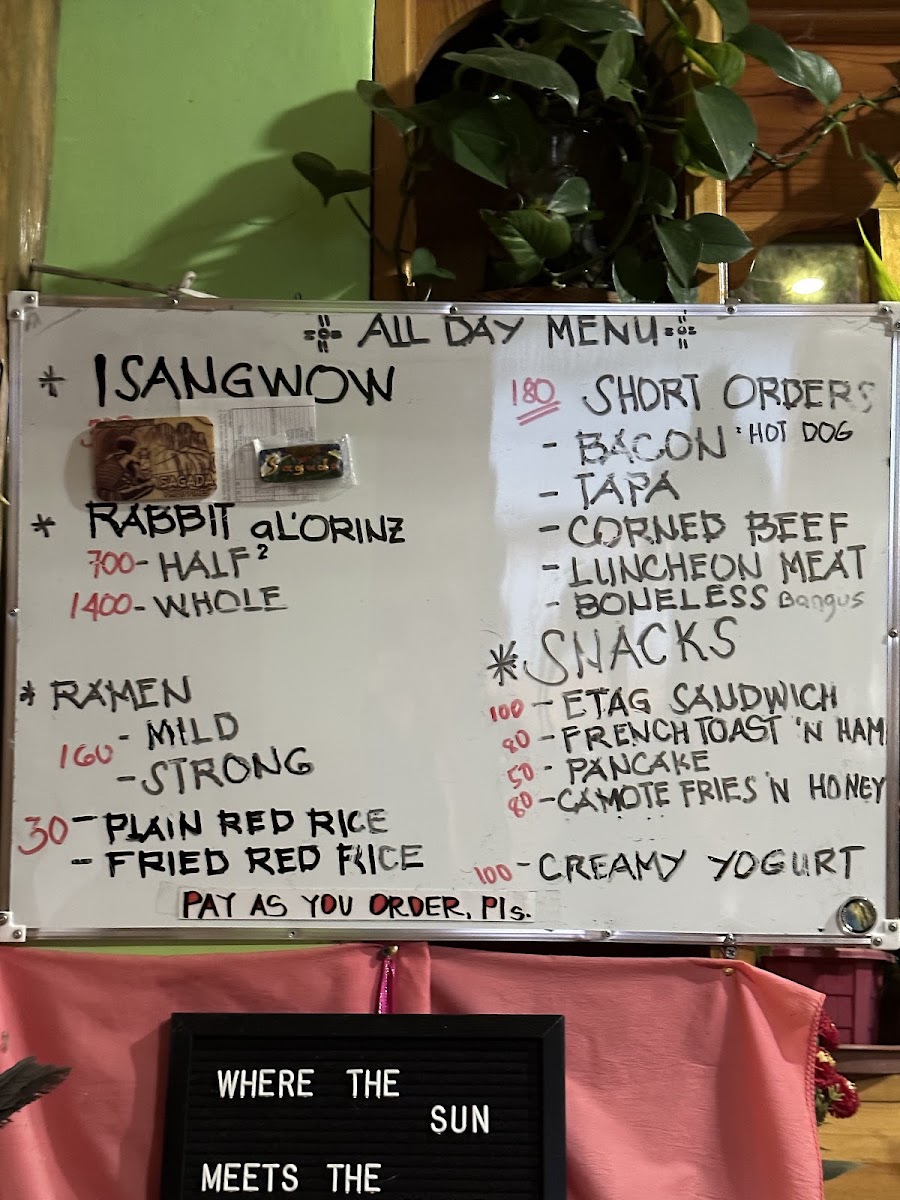 ALL DAY MENU
* ISANGWOW
SAGADA
Sagada
* RABBIT aL'ORINZ
700 - HALF²
1400 - WHOLE
* RAMEN
- MILD
160
- STRONG
30 - PLAIN RED RICE
- FRIED RED RICE
180 SHORT ORDERS
- BACON HOT DOG
- TAPA
- CORNED BEEF
- LUNCHEON MEAT
- BONELESS Bangus
* SNACKS
100 - ETAG SANDWICH
80 - FRENCH TOAST 'N HAM
50 - PANCAKE
80 - CAMOTE FRIES 'N HONEY
100 - CREAMY YOGURT
PAY AS YOU ORDER, Pls.
WHERE THE
SUN
MEETS THE